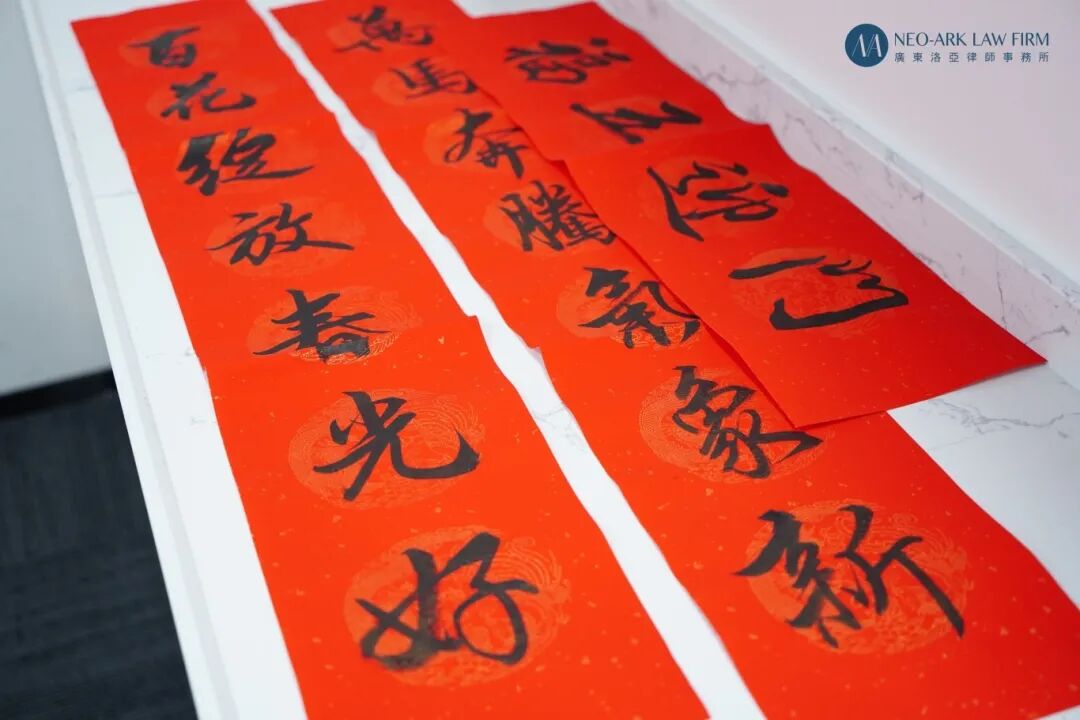 NEO-ARK LAW FIRM
廣東洛亞律師事務所
萬馬奔騰氣象新
百花綻放春光好